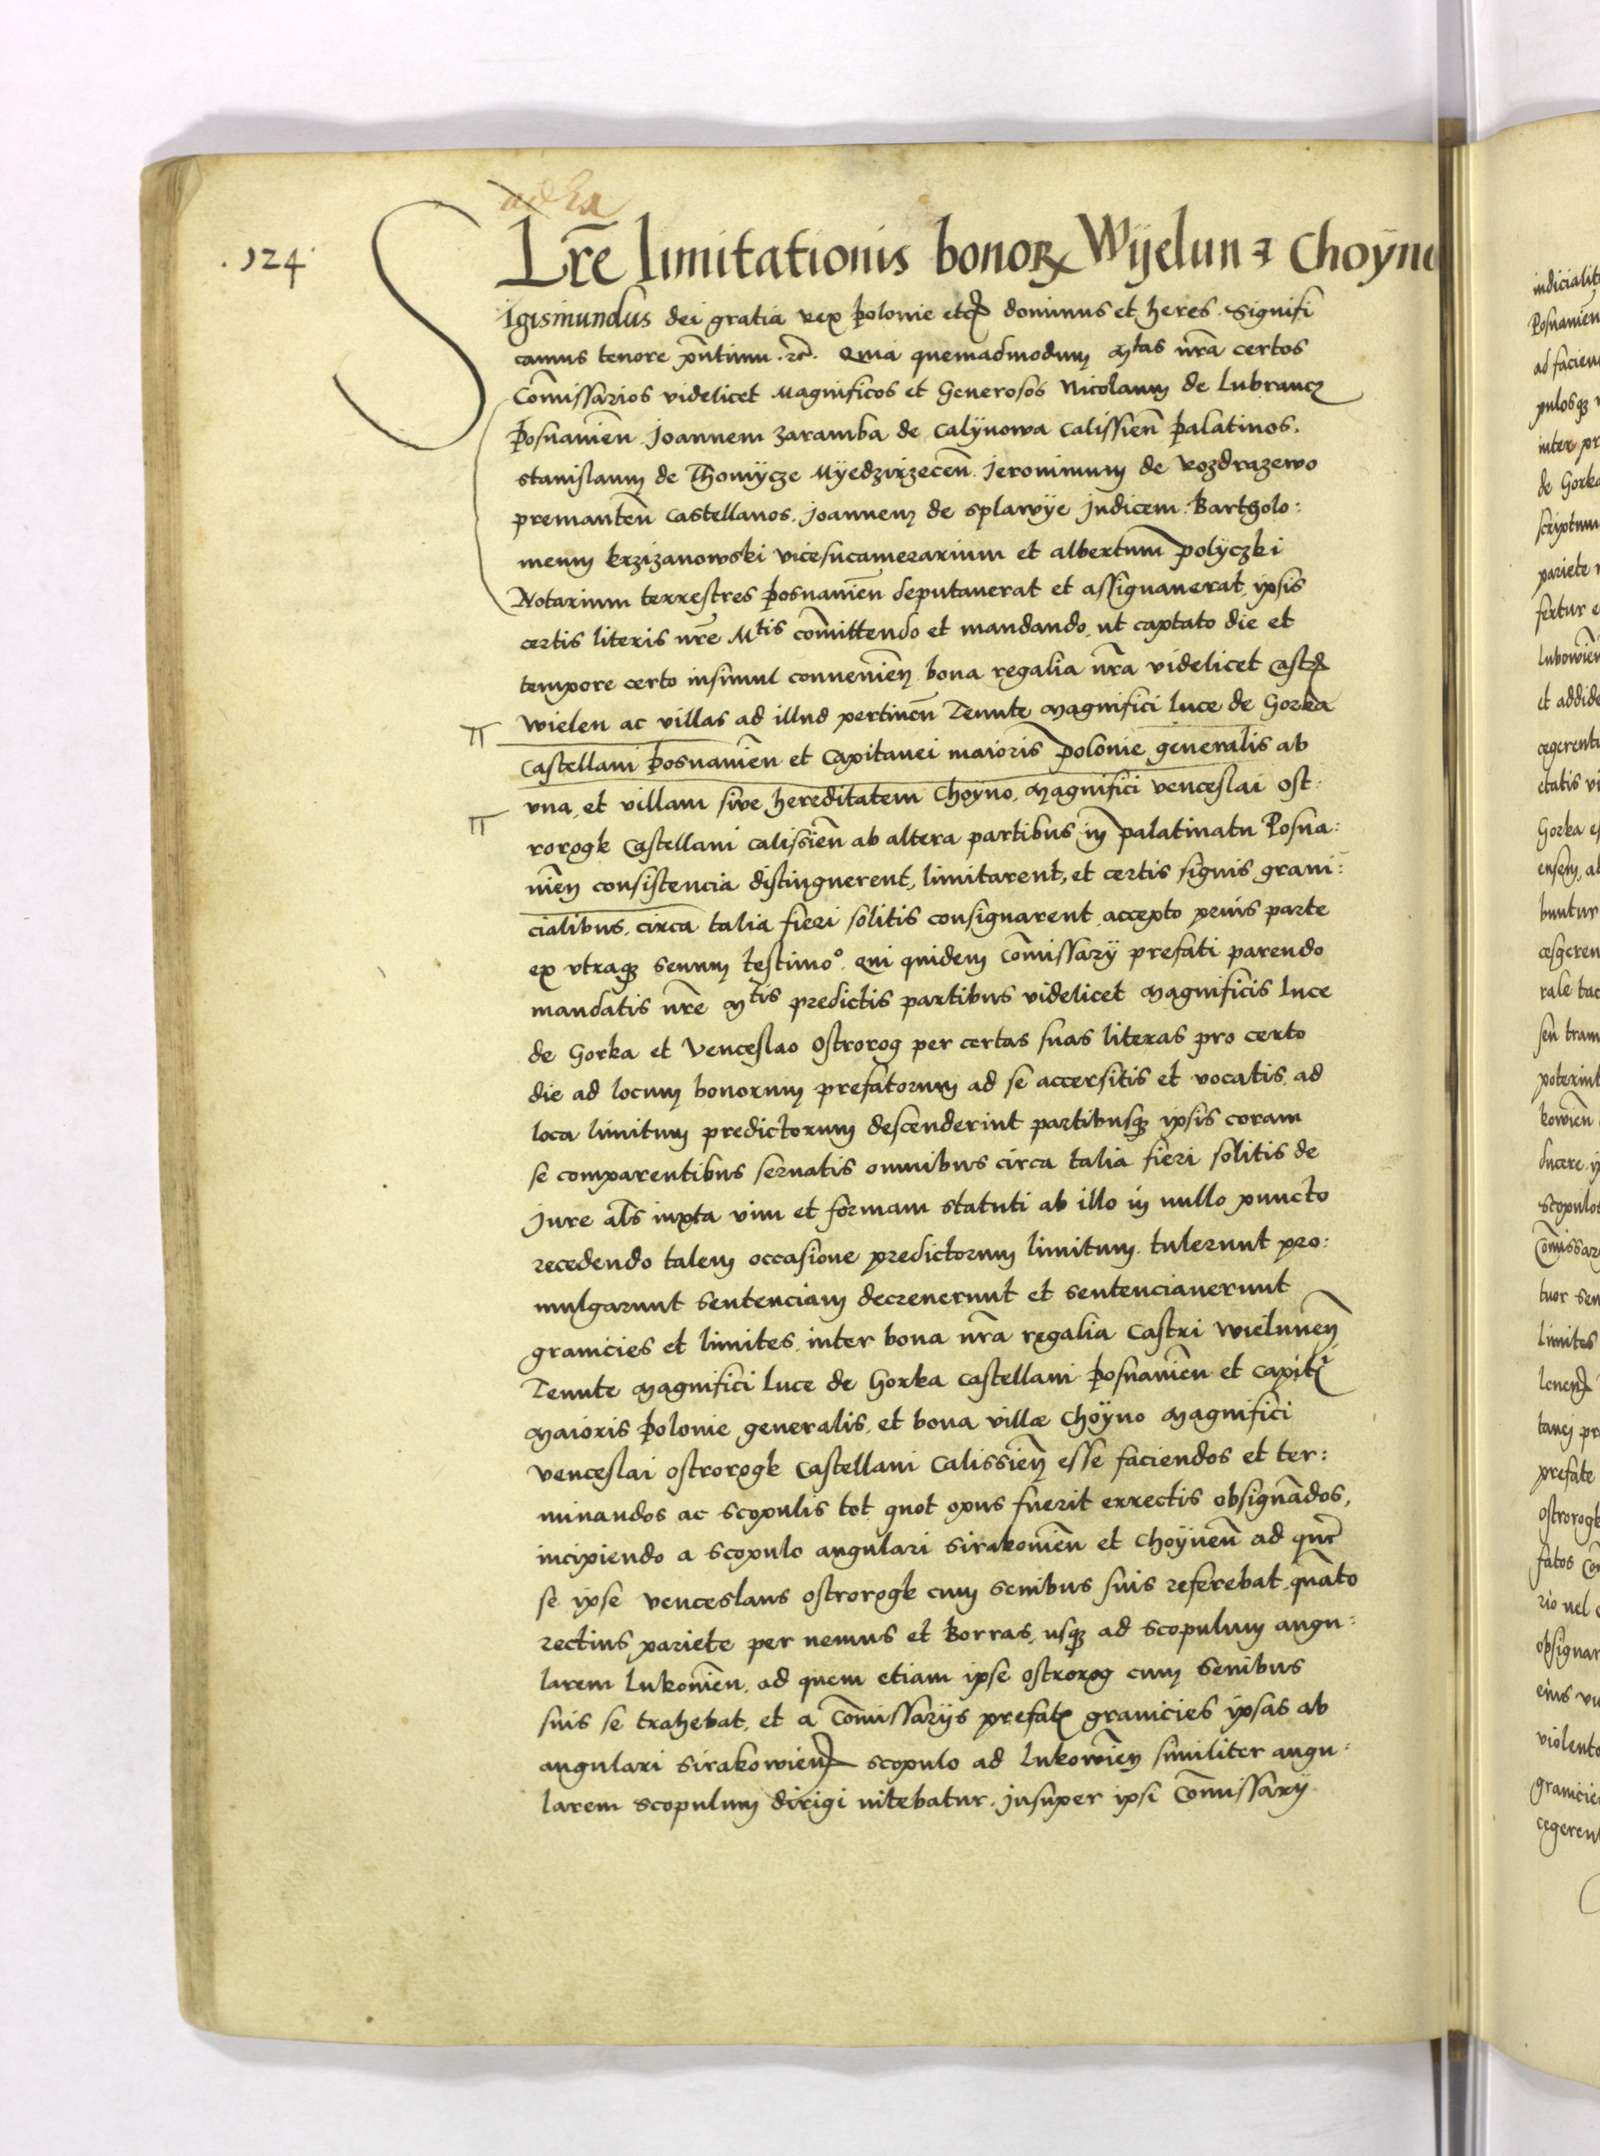 .124.
Lrẽ limitationis bonoꝝ Wÿelun ⁊ Choÿno
Sigismundus dei gratia rex polonie etcꝫ dominus et heres. Signifi
camus tenore pñtium .⁊c̃. Quia quemadmodum Mtas nr̃a certos
Com̃issarios videlicet Magnificos et Generosos Nicolaum de Lubrancz
Posnanien̄ Joannem zaramba de Calÿnowa Calissien̄ palatinos.
stanislaum de Thomÿcze Myedzirzecen̄. Jeronimum de Rozdrazewo
premanten̄ Castellanos. Joannem de splawÿe Judicem. Bartholo:
meum krzizanowski vicesucamerarium et albertum polÿczki
Notarium terrestres Posnanien̄ deputauerat et assignauerat, ipsis
certis literis nrẽ Mtis com̃ittendo et mandando, ut captato die et
tempore certo insimul conuenien̄ bona regalia nr̃a videlicet Castꝝ
Wielen ac villas ad illud pertinen̄ Tenute Magnifici Luce de Gorka
Castellani Posnanien̄ et Capitanei maioris polonie generalis ab
vna, et villam sive hereditatem Choyno, Magnifici venceslai Ost:
rorogk Castellani calissien̄ ab altera partibus in palatinatu Posna:
nien̄ consistencia distinguerent, limitarent, et certis signis grani:
cialibus, circa talia fieri solitis consignarent, accepto prius parte
ex utraqꝫ senum testimoº. qui quidem Com̃issarÿ prefati parendo
mandatis nrẽ Mtis predictis partibus videlicet Magnificis Luce
de Gorka et Venceslao Ostrorog per certas suas literas pro certo
die ad locum bonorum prefatorum ad se accersitis et vocatis, ad
loca limitum predictorum descenderint partibusqꝫ ipsis coram
se comparentibus seruatis omnibus circa talia fieri solitis de
Jure al̃s iuxta vim et formam statuti ab illo in nullo puncto
recedendo talem occasione predictorum limitum. tulerunt pro:
mulgarunt sentenciam decreuerunt et sentenciauerunt
granicies et limites, inter bona nr̃a regalia Castri Wielunen̄
Tenute Magnifici Luce de Gorka Castellani Posnanien̄ et Capitꝭi
Maioris Polonie generalis, et bona villæ Choÿno Magnifici
venceslai ostrorogk Castellani Calissien̄ esse faciendos et ter:
minandos ac scopulis tot quot opus fuerit errectis obsignãdos,
incipiendo a scopulo angulari sirakouien̄ et Choÿnen̄ ad que᷒
se ipse venceslaus ostrorogk cum senibus suis referebat, quãto
rectius pariete per nemus et Borras, usqꝫ ad scopulum angu:
larem Lukouien̄. ad quem etiam ipse ostrorog cum Senibus
suis se trahebat, et a Com̃issariÿs prefatꝭ granicies ipsas ab
angulari sirakowienꝭ scopulo ad Lukowien̄ similiter angu:
larem scopulum dirigi nitebatur. Insuper ipsi Com̃issarÿ